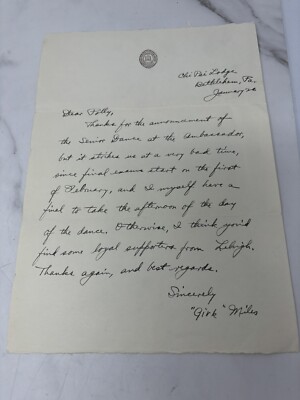 Chi Psi Lodge
Bethlehem, Pa.
January 22
Dear Polly,
Thanks for the announcement of
the Senior Dance at the Ambassador,
but it strikes us at a very bad time,
since final exams start on the first
of February, and I myself have a
final to take the afternoon of the day
of the dance. Otherwise, I think you'd
find some loyal supporters from Lehigh.
Thanks again, and best regards.
Sincerely
"Girk" Miles